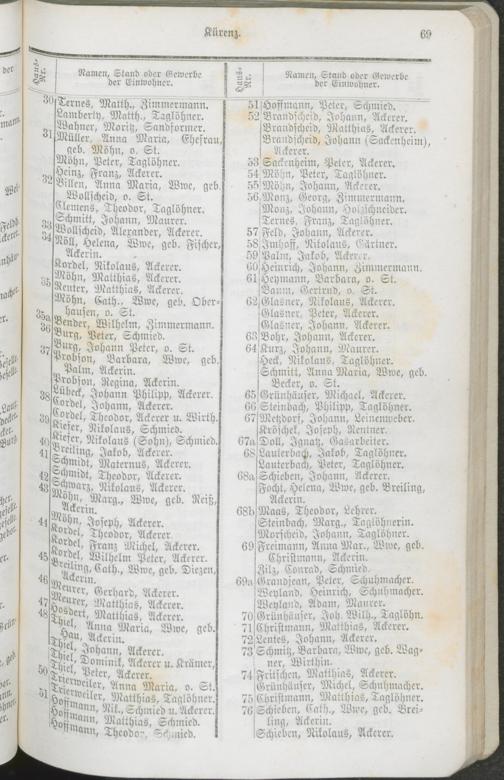 Kürenz.
69
Haus-Nr.
Namen, Stand oder Gewerbe
der Einwohner.
30 Ternes, Matth., Zimmermann.
Lamberty, Matth., Taglöhner.
Wahner, Moritz, Sandformer.
31 Müller, Anna Maria, Ehefrau,
geb. Möhn, o. St.
Möhn, Peter, Taglöhner.
Heinz, Franz, Ackerer.
32 Billen, Anna Maria, Wwe, geb.
Wollscheid, o. St.
Clemens, Theodor, Taglöhner.
Schmitt, Johann, Maurer.
33 Wollscheid, Alexander, Ackerer.
34 Röll, Helena, Wwe, geb. Fischer,
Ackerin.
Kordel, Nikolaus, Ackerer.
Möhn, Matthias, Ackerer.
35 Reuter, Matthias, Ackerer.
Möhn, Cath., Wwe, geb. Ober-
hausen, o. St.
35a Bender, Wilhelm, Zimmermann.
36 Burg, Peter, Schmied.
Burg, Johann Peter, o. St.
37 Probson, Barbara, Wwe, geb.
Palm, Ackerin.
Probson, Regina, Ackerin.
Lübeck, Johann Philipp, Ackerer.
38 Cordel, Johann, Ackerer.
Cordel, Theodor, Ackerer u. Wirth.
39 Kiefer, Nikolaus, Schmied.
Kiefer, Nikolaus (Sohn), Schmied.
40 Breiling, Jakob, Ackerer.
41 Schmidt, Maternus, Ackerer.
Schmidt, Theodor, Ackerer.
42 Schwarz, Nikolaus, Ackerer.
43 Möhn, Marg., Wwe, geb. Reiß,
Ackerin.
Möhn, Joseph, Ackerer.
44 Kordel, Theodor, Ackerer.
Kordel, Franz Michel, Ackerer.
Kordel, Wilhelm Peter, Ackerer.
45 Breiling, Cath., Wwe, geb. Diezen,
Ackerin.
46 Meurer, Gerhard, Ackerer.
Meurer, Matthias, Ackerer.
47 Hosdert, Mathias, Ackerer.
48 Thiel, Anna Maria, Wwe, geb.
Hau, Ackerin.
Thiel, Johann, Ackerer.
Thiel, Dominik, Ackerer u. Krämer,
Thiel, Peter, Ackerer.
50 Trierweiler, Anna Maria, o. St.
Trierweiler, Matthias, Taglöhner.
51 Hoffmann, Nik., Schmied u. Ackerer.
Hoffmann, Matthias, Schmied.
Hoffmann, Theodor, Schmied.
Haus-Nr.
Namen, Stand oder Gewerbe
der Einwohner.
51 Hoffmann, Peter, Schmied.
52 Brandscheid, Johann, Ackerer.
Brandscheid, Matthias, Ackerer.
Brandscheid, Johann (Sackenheim),
Ackerer.
53 Sackenheim, Peter, Ackerer.
54 Möhn, Peter, Taglöhner.
55 Möhn, Johann, Ackerer.
56 Monz, Georg, Zimmermann.
Monz, Johann, Holzschneider.
Ternes, Franz, Taglöhner.
57 Feld, Johann, Ackerer.
58 Imhoff, Nikolaus, Gärtner.
59 Palm, Jakob, Ackerer.
60 Heinrich, Johann, Zimmermann.
61 Heymann, Barbara, o. St.
Baum, Gertrud, o. St.
62 Glasner, Nikolaus, Ackerer.
Glasner, Peter, Ackerer.
Glasner, Johann, Ackerer.
63 Bohr, Johann, Ackerer.
64 Kurz, Johann, Maurer.
Heck, Nikolaus, Taglöhner.
Schmitt, Anna Maria, Wwe, geb.
Becker, o. St.
65 Grünhäuser, Michael, Ackerer.
66 Steinbach, Philipp, Taglöhner.
67 Metzdorf, Johann, Leineweber.
Kröschel, Joseph, Rentner.
67a Doll, Ignatz, Gasarbeiter.
68 Lauterbach, Jakob, Taglöhner.
Lauterbach, Peter, Taglöhner.
68a Schieben, Johann, Ackerer.
Focht, Helena, Wwe, geb. Breiling,
Ackerin.
68b Maas, Theodor, Lehrer.
Steinbach, Marg., Taglöhnerin.
Morscheid, Johann, Taglöhner.
69 Freimann, Anna Mar., Wwe, geb.
Christmann, Ackerin.
Zilz, Conrad, Schmied.
69a Grandjean, Peter, Schuhmacher.
Weyland, Heinrich, Schuhmacher.
Weyland, Adam, Maurer.
70 Grünhäuser, Joh. Wilh., Taglöhn.
71 Christmann, Matthias, Ackerer.
72 Lentes, Johann, Ackerer.
73 Schmitz, Barbara, Wwe, geb. Wag-
ner, Wirthin.
74 Fritschen, Matthias, Ackerer.
Grünhäuser, Michel, Schuhmacher.
75 Christmann, Matthias, Taglöhner.
76 Schieben, Cath., Wwe, geb. Brei-
ling, Ackerin.
Schieben, Nikolaus, Ackerer.